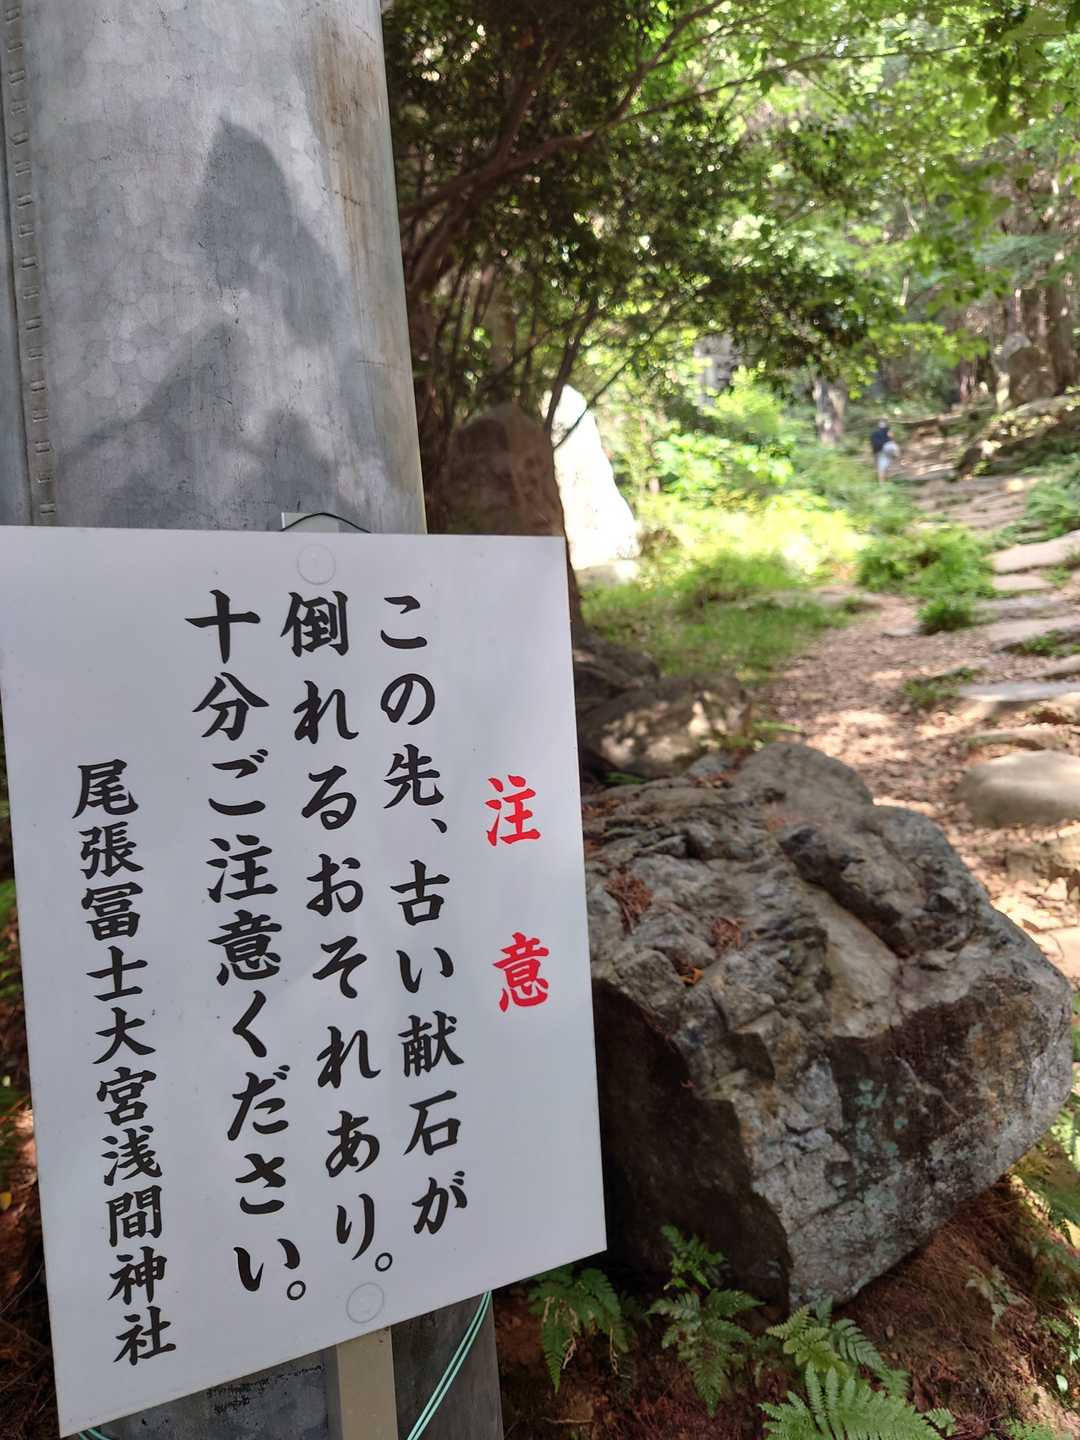 注意
この先、古い献石が
倒れるおそれあり。
十分ご注意ください。
尾張冨士大宮浅間神社